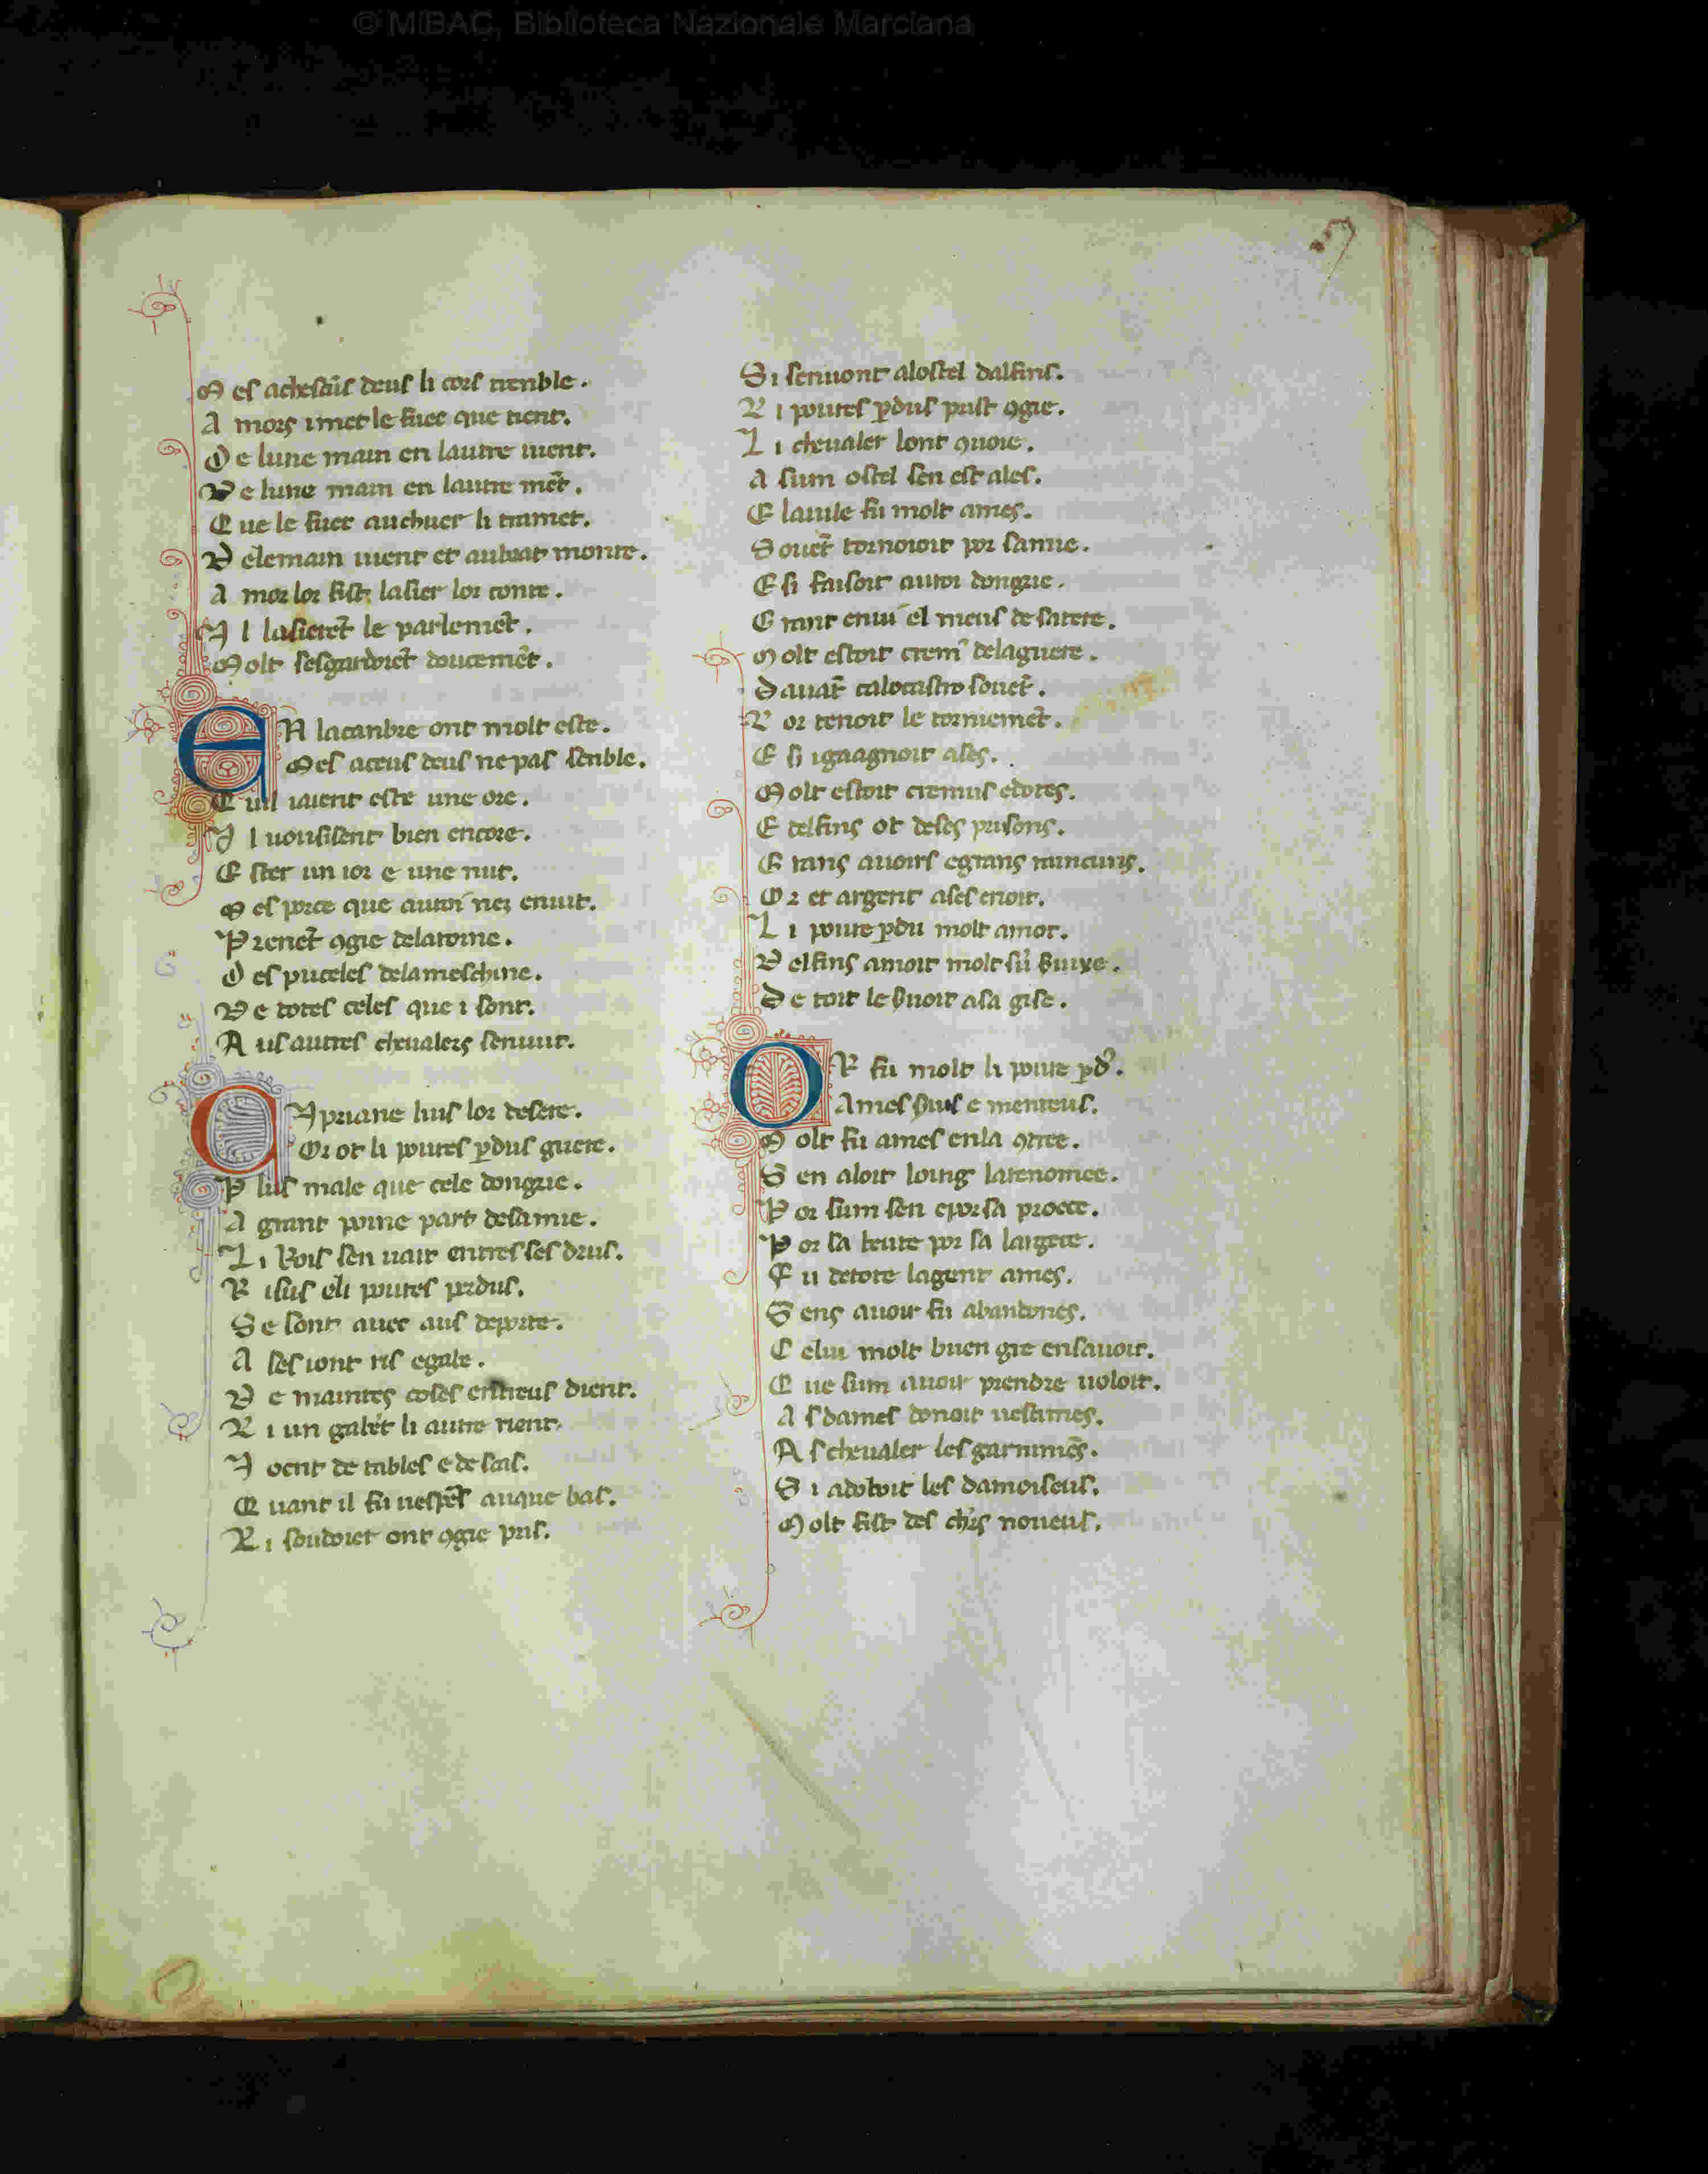 © MiBAC, Biblioteca Nazionale Marciana
M es achescũs deus li cors tremble.
A mors imet le fuec que tient.
D e lune main en lautre uient.
D e lune main en lautre mẽt.
Q ue le fuec auchuer li tramet.
D elemain uient et aubrat monte.
A mor lor fist lasier lor conte.
I l lasierẽt le parlemẽt.
M olt sesgardoiẽt doucemẽt.
E N lacanbre ont molt este.
M es aceus deus ne pas senble.
Q uil iaient este une ore.
I l uousisent bien encore.
E ster un ior e une nut.
M es porce que autoi nez enuit.
P renẽt ꝯgie delaroine.
D es puceles delameschine.
D e totes celes que i sont.
A us autres cheualers senuint.
C Ipriane huis lor desere.
Or ot li poures ꝑdus guere.
P lus male que cele dongrie.
A grant poine part desamie.
L i Rois sen uait entres ses drus.
R isus eli poures perdus.
S e sont auec aus deporte.
A ses iont ris egabe.
D e maintes coses entreus dient.
L i un gabẽt li autre rient.
I oent de tables e de scas.
Q uant il fu uespẽs auque bas.
L i soudoier ont ꝯgie pris.
S i senuont alostel dalfins.
L i poures ꝑdus prist ꝯgie.
L i cheualer lont ꝯuoie.
A sum ostel sen est ales.
E lauile fu molt ames.
S ouẽt tornoioit por samie.
E si faisoit autoi dongrie.
G rant enui el meus de satere.
M olt estoit crem delaguere.
D auãt calocastro souẽt.
L or tenoit le torniemẽt.
E si igaagnoit ases.
M olt estoit cremus edotes.
E delfins ot deses prisons.
G rans auoirs egrans raincuns.
O r et argent ases enoit.
L i poure ꝑdu molt amot.
D elfins amoit molt
D e toit le asa gise.
O R fu molt li poure ꝑd.
Ames e menteus.
M olt fu ames enla ꝯtree.
S en aloit loing larenomee.
P or sum sen epor sa proece.
P or sa beute por sa largece.
F u detote lagent ames.
S ens auoir fu abandones.
C elui molt buen gre ensauoir.
Q ue sum auoir prendre uoloit.
A s dames donoit uestimẽs.
A s cheualer les garnimẽs.
S i adoboit les damoiseus.
M olt fist des chꝰrs noueus.